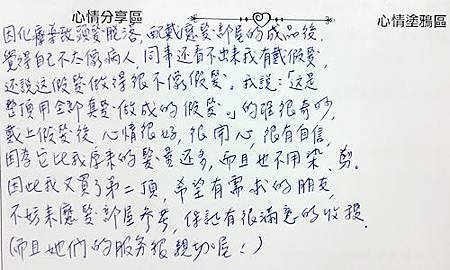 心情分享區 心情塗鴉區
因化療導致頭髮脫落,配戴應髮部屋的成品後,
覺得自己不太像病人,同事還看不出來我有戴假髮,
還說這假髮做得很不像假髮。我說:「這是
整頂用全部真髮做成的假髮。」的確很奇妙,
戴上假髮後,心情很好,很開心,很有自信,
因為它比我原來的髮量還多,而且也不用染、剪。
因此我又買了第二頂,希望有需求的朋友,
不妨來應髮部屋參考,保証有很滿意的收穫。
(而且她們的服務很親切喔!)